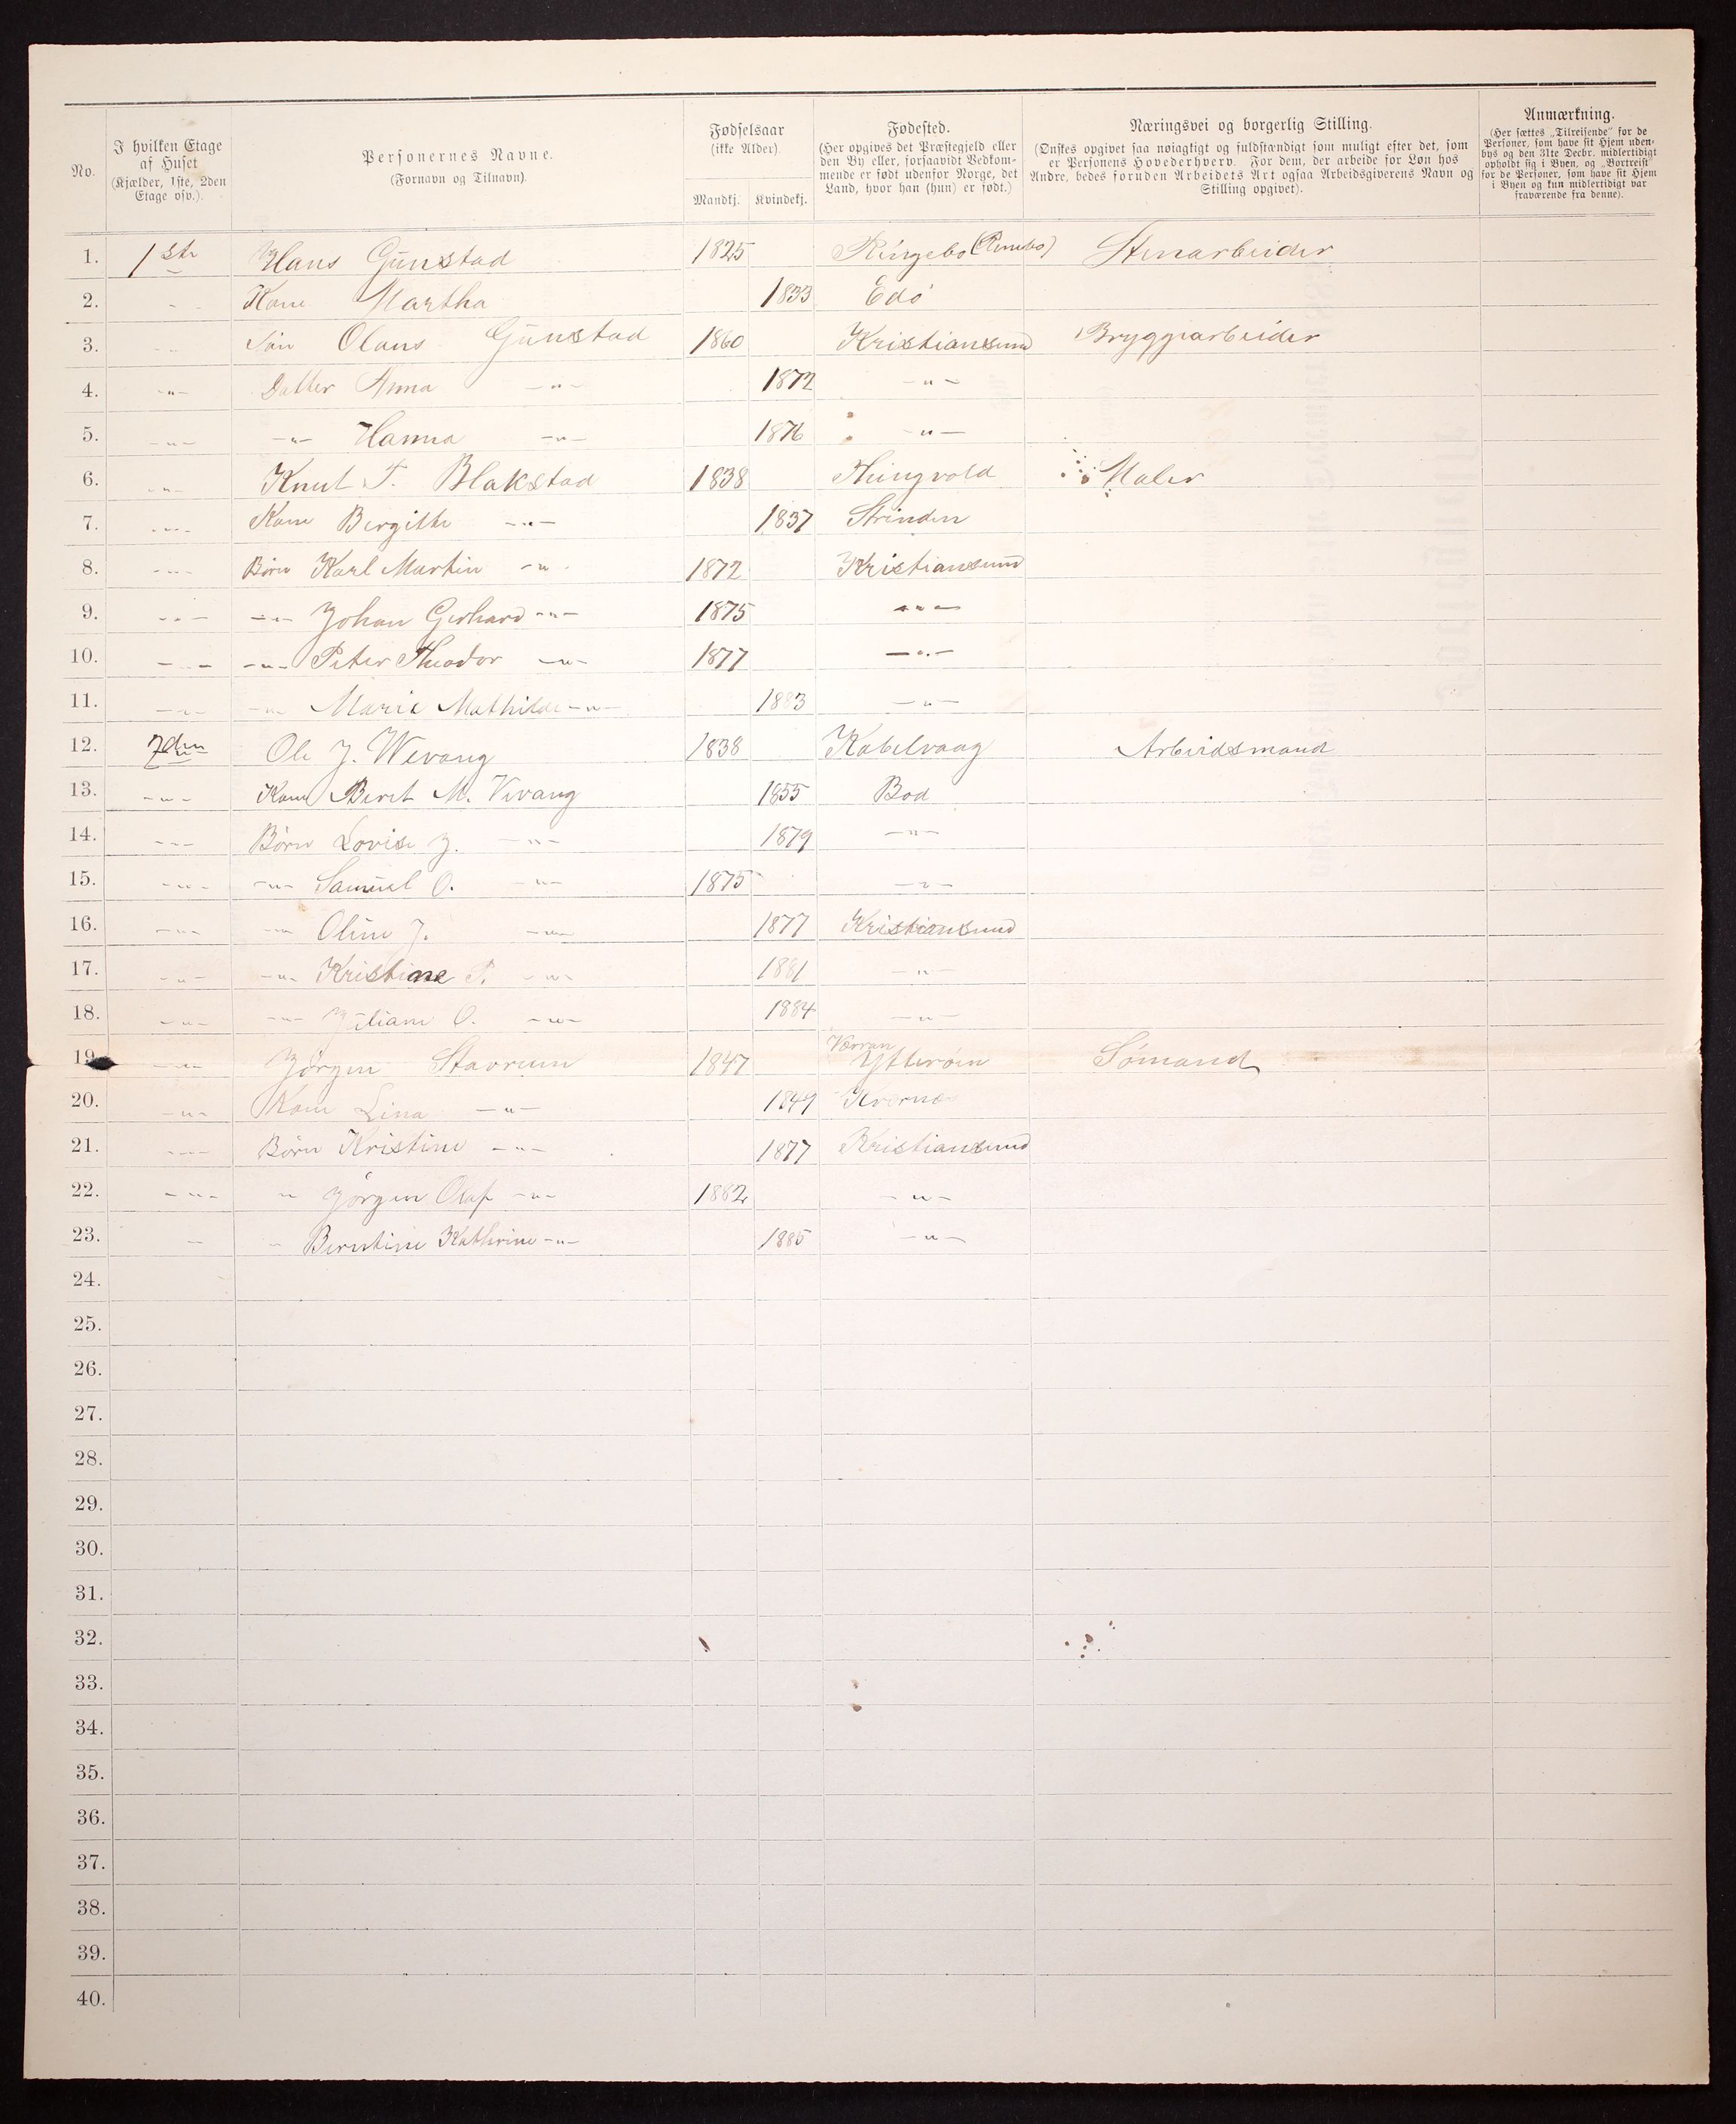 No.
I hvilken Etage af Huset (Kjælder, 1ste, 2den Etage osv.).
Personernes Navne. (Fornavn og Tilnavn).
Fødselsaar (ikke Alder). Mandkj. Kvindekj.
Fødested. (Her opgives det Præstegjeld eller den By eller, forsaavidt Vedkommende er født udenfor Norge, det Land, hvor han (hun) er født.)
Næringsvei og borgerlig Stilling. (Ønskes opgivet saa nøiagtigt og fuldstændigt som muligt efter det, som er Personens Hovederhverv. For dem, der arbeide for Løn hos Andre, bedes foruden Arbeidets Art ogsaa Arbeidsgiverens Navn og Stilling opgivet).
Anmærkning. (Her sættes „Tilreisende" for de Personer, som have sit Hjem udenbys og den 31te Decbr. midlertidigt opholdt sig i Byen, og „Bortreist" for de Personer, som have sit Hjem i Byen og kun midlertidigt var fraværende fra denne).
1. 1ste Hans Gunstad 1825 Ringebo Stenarbeider
2. Kone Martha 1833 Edø
3. Søn Olaus Gunstad 1860 Kristiansund Bryggiarbeider
4. -"- Datter Anna -"- 1872 -"-
5. -"- -"- Hanna -"- 1876 -"-
6. -"- Knut T. Blakstad 1838 Thingvold Maler
7. -"- Kone Bergitte -"- 1837 Strinden
8. -"- Børn Karl Martin -"- 1872 Kristiansund
9. -"- -"- Johan Gerhard -"- 1875 -"-
10. -"- -"- Peter Theodor -"- 1877 -"-
11. -"- -"- Marie Mathilde -"- 1883 -"-
12. 2den Ole J. Wevang 1838 Kabelvaag Arbeidsmand
13. -"- Kone Beret M. Vevang 1855 Bod
14. -"- Børn Lovise J. -"- 1879 -"-
15. -"- -"- Samuel O. -"- 1875 -"-
16. -"- -"- Oline J. -"- 1877 Kristiansund
17. -"- -"- Kristine P. -"- 1881 -"-
18. -"- -"- Juliane O. -"- 1884 -"-
19. -"- Jørgen Stavrum 1847 Værran Ytterøen Sømand
20. -"- Kone Lina -"- 1849 Kværnæs
21. -"- Børn Kristine -"- 1877 Kristiansund
22. -"- " Jørgen Olaf -"- 1882 -"-
23. - " Berntine Kathrine -"- 1885 -"-
24.
25.
26.
27.
28.
29.
30.
31.
32.
33.
34.
35.
36.
37.
38.
39.
40.